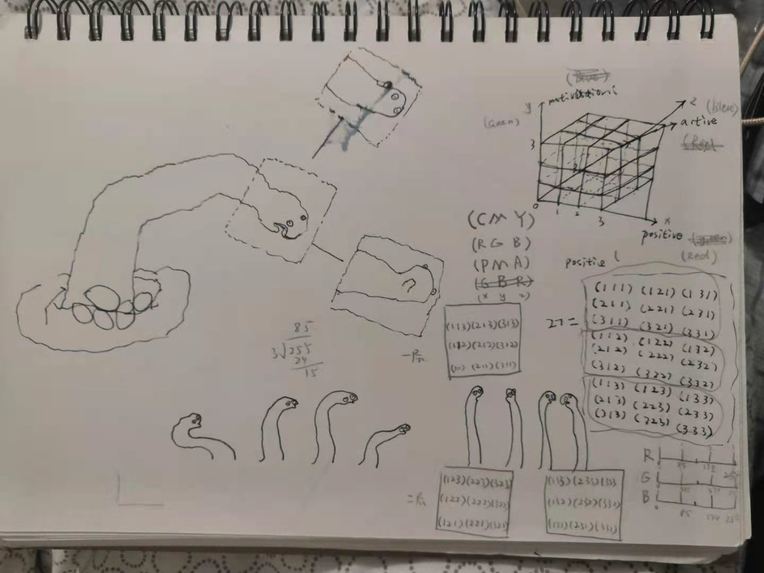 y motivations
z (blue)
active
3
2
1
0
1 2 3
x
positive
(Red)
(CMY)
(RGB)
(PMA)
(GBR)
(x y z)
positive 1
27=
(111) (121) (131)
(211) (221) (231)
(311) (321) (331)
(112) (122) (132)
(212) (222) (232)
(312) (322) (332)
(113) (123) (133)
(213) (223) (233)
(313) (323) (333)
?
85
3√255
24
15
一层
(113)(213)(313)
(112)(212)(312)
(111)(211)(311)
二层
(123)(223)(323)
(122)(222)(322)
(121)(221)(321)
(132)(232)(332)
(131)(231)(331)
R
G
B
85